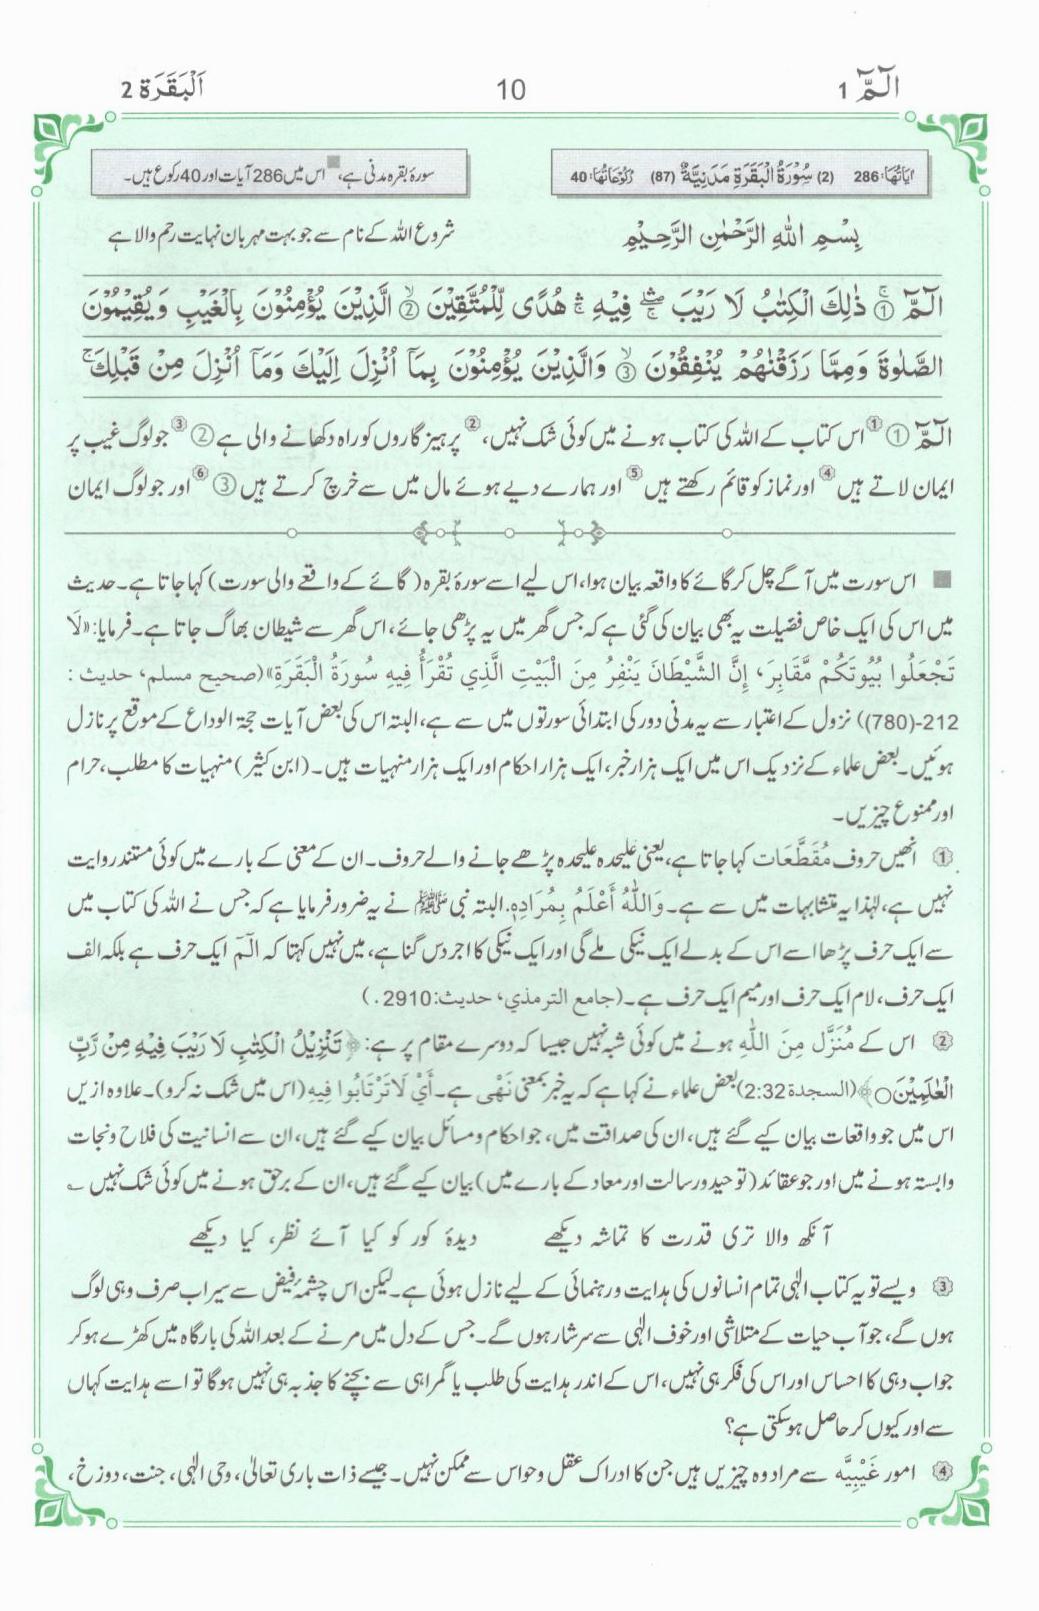 الٓمّٓ 1
10
اَلْبَقَرَة 2
اٰيَاتُهَا: 286 (2) سُوْرَةُ الْبَقَرَةِ مَدَنِيَّةٌ (87) رُكُوْعَاتُهَا: 40
سورۂ بقرہ مدنی ہے، ■ اس میں 286 آیات اور 40 رکوع ہیں۔
بِسْمِ اللّٰهِ الرَّحْمٰنِ الرَّحِيْمِ
شروع اللہ کے نام سے جو بہت مہربان نہایت رحم والا ہے
الٓمّٓ ۚ ① ذٰلِكَ الْكِتٰبُ لَا رَيْبَ ۛۖ فِيْهِ ۛۚ هُدًى لِّلْمُتَّقِيْنَ ۙ ② الَّذِيْنَ يُؤْمِنُوْنَ بِالْغَيْبِ وَيُقِيْمُوْنَ
الصَّلٰوةَ وَمِمَّا رَزَقْنٰهُمْ يُنْفِقُوْنَ ۙ ③ وَالَّذِيْنَ يُؤْمِنُوْنَ بِمَآ اُنْزِلَ اِلَيْكَ وَمَآ اُنْزِلَ مِنْ قَبْلِكَ ۚ
الٓمّٓ ① ① اس کتاب کے اللہ کی کتاب ہونے میں کوئی شک نہیں، ② پرہیزگاروں کو راہ دکھانے والی ہے ② ③ جو لوگ غیب پر
ایمان لاتے ہیں ④ اور نماز کو قائم رکھتے ہیں ⑤ اور ہمارے دیے ہوئے مال میں سے خرچ کرتے ہیں ③ ⑥ اور جو لوگ ایمان
■ اس سورت میں آگے چل کر گائے کا واقعہ بیان ہوا، اس لیے اسے سورۂ بقرہ (گائے کے واقعے والی سورت) کہا جاتا ہے۔ حدیث
میں اس کی ایک خاص فضیلت یہ بھی بیان کی گئی ہے کہ جس گھر میں یہ پڑھی جائے، اس گھر سے شیطان بھاگ جاتا ہے۔ فرمایا: «لَا
تَجْعَلُوا بُيُوتَكُمْ مَّقَابِرَ، إِنَّ الشَّيْطَانَ يَنْفِرُ مِنَ الْبَيْتِ الَّذِي تُقْرَأُ فِيهِ سُورَةُ الْبَقَرَةِ» (صحیح مسلم، حدیث :
212-(780)) نزول کے اعتبار سے یہ مدنی دور کی ابتدائی سورتوں میں سے ہے، البتہ اس کی بعض آیات حجۃ الوداع کے موقع پر نازل
ہوئیں۔ بعض علماء کے نزدیک اس میں ایک ہزار خبر، ایک ہزار احکام اور ایک ہزار منہیات ہیں۔ (ابن کثیر) منہیات کا مطلب، حرام
اور ممنوع چیزیں۔
① انھیں حروف مُقَطَّعَات کہا جاتا ہے، یعنی علیحدہ علیحدہ پڑھے جانے والے حروف۔ ان کے معنی کے بارے میں کوئی مستند روایت
نہیں ہے، لہٰذا یہ متشابہات میں سے ہے۔ وَاللّٰهُ أَعْلَمُ بِمُرَادِهٖ. البتہ نبی ﷺ نے یہ ضرور فرمایا ہے کہ جس نے اللہ کی کتاب میں
سے ایک حرف پڑھا اسے اس کے بدلے ایک نیکی ملے گی اور ایک نیکی کا اجر دس گنا ہے، میں نہیں کہتا کہ الٓمٓ ایک حرف ہے بلکہ الف
ایک حرف، لام ایک حرف اور میم ایک حرف ہے۔ (جامع الترمذي، حدیث: 2910.)
② اس کے مُنَزَّل مِنَ اللّٰهِ ہونے میں کوئی شبہ نہیں جیسا کہ دوسرے مقام پر ہے: ﴿تَنْزِيْلُ الْكِتٰبِ لَا رَيْبَ فِيْهِ مِنْ رَّبِّ
الْعٰلَمِيْنَ○﴾ (السجدة 2:32) بعض علماء نے کہا ہے کہ یہ خبر بمعنی نَهْی ہے۔ أَيْ لَا تَرْتَابُوا فِيهِ (اس میں شک نہ کرو)۔ علاوہ ازیں
اس میں جو واقعات بیان کیے گئے ہیں، ان کی صداقت میں، جو احکام و مسائل بیان کیے گئے ہیں، ان سے انسانیت کی فلاح و نجات
وابستہ ہونے میں اور جو عقائد (توحید و رسالت اور معاد کے بارے میں) بیان کیے گئے ہیں، ان کے برحق ہونے میں کوئی شک نہیں ؎
آنکھ والا تری قدرت کا تماشہ دیکھے دیدۂ کور کو کیا آئے نظر، کیا دیکھے
③ ویسے تو یہ کتاب الٰہی تمام انسانوں کی ہدایت و رہنمائی کے لیے نازل ہوئی ہے۔ لیکن اس چشمۂ فیض سے سیراب صرف وہی لوگ
ہوں گے، جو آب حیات کے متلاشی اور خوف الٰہی سے سرشار ہوں گے۔ جس کے دل میں مرنے کے بعد اللہ کی بارگاہ میں کھڑے ہو کر
جواب دہی کا احساس اور اس کی فکر ہی نہیں، اس کے اندر ہدایت کی طلب یا گمراہی سے بچنے کا جذبہ ہی نہیں ہوگا تو اسے ہدایت کہاں
سے اور کیوں کر حاصل ہو سکتی ہے؟
④ امور غَيْبِيَّه سے مراد وہ چیزیں ہیں جن کا ادراک عقل و حواس سے ممکن نہیں۔ جیسے ذات باری تعالیٰ، وحی الٰہی، جنت، دوزخ،